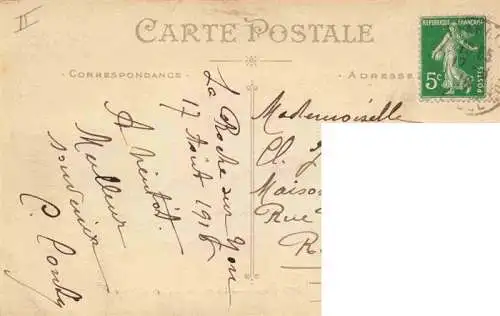 II
CARTE POSTALE
CORRESPONDANCE
ADRESSE
REPUBLIQUE FRANÇAISE
5c
POSTES
La Roche sur Yon
17 Août 1916
A bientôt.
Meilleur
souvenir
C.
Mademoiselle
Cl.
Maison
Rue
R